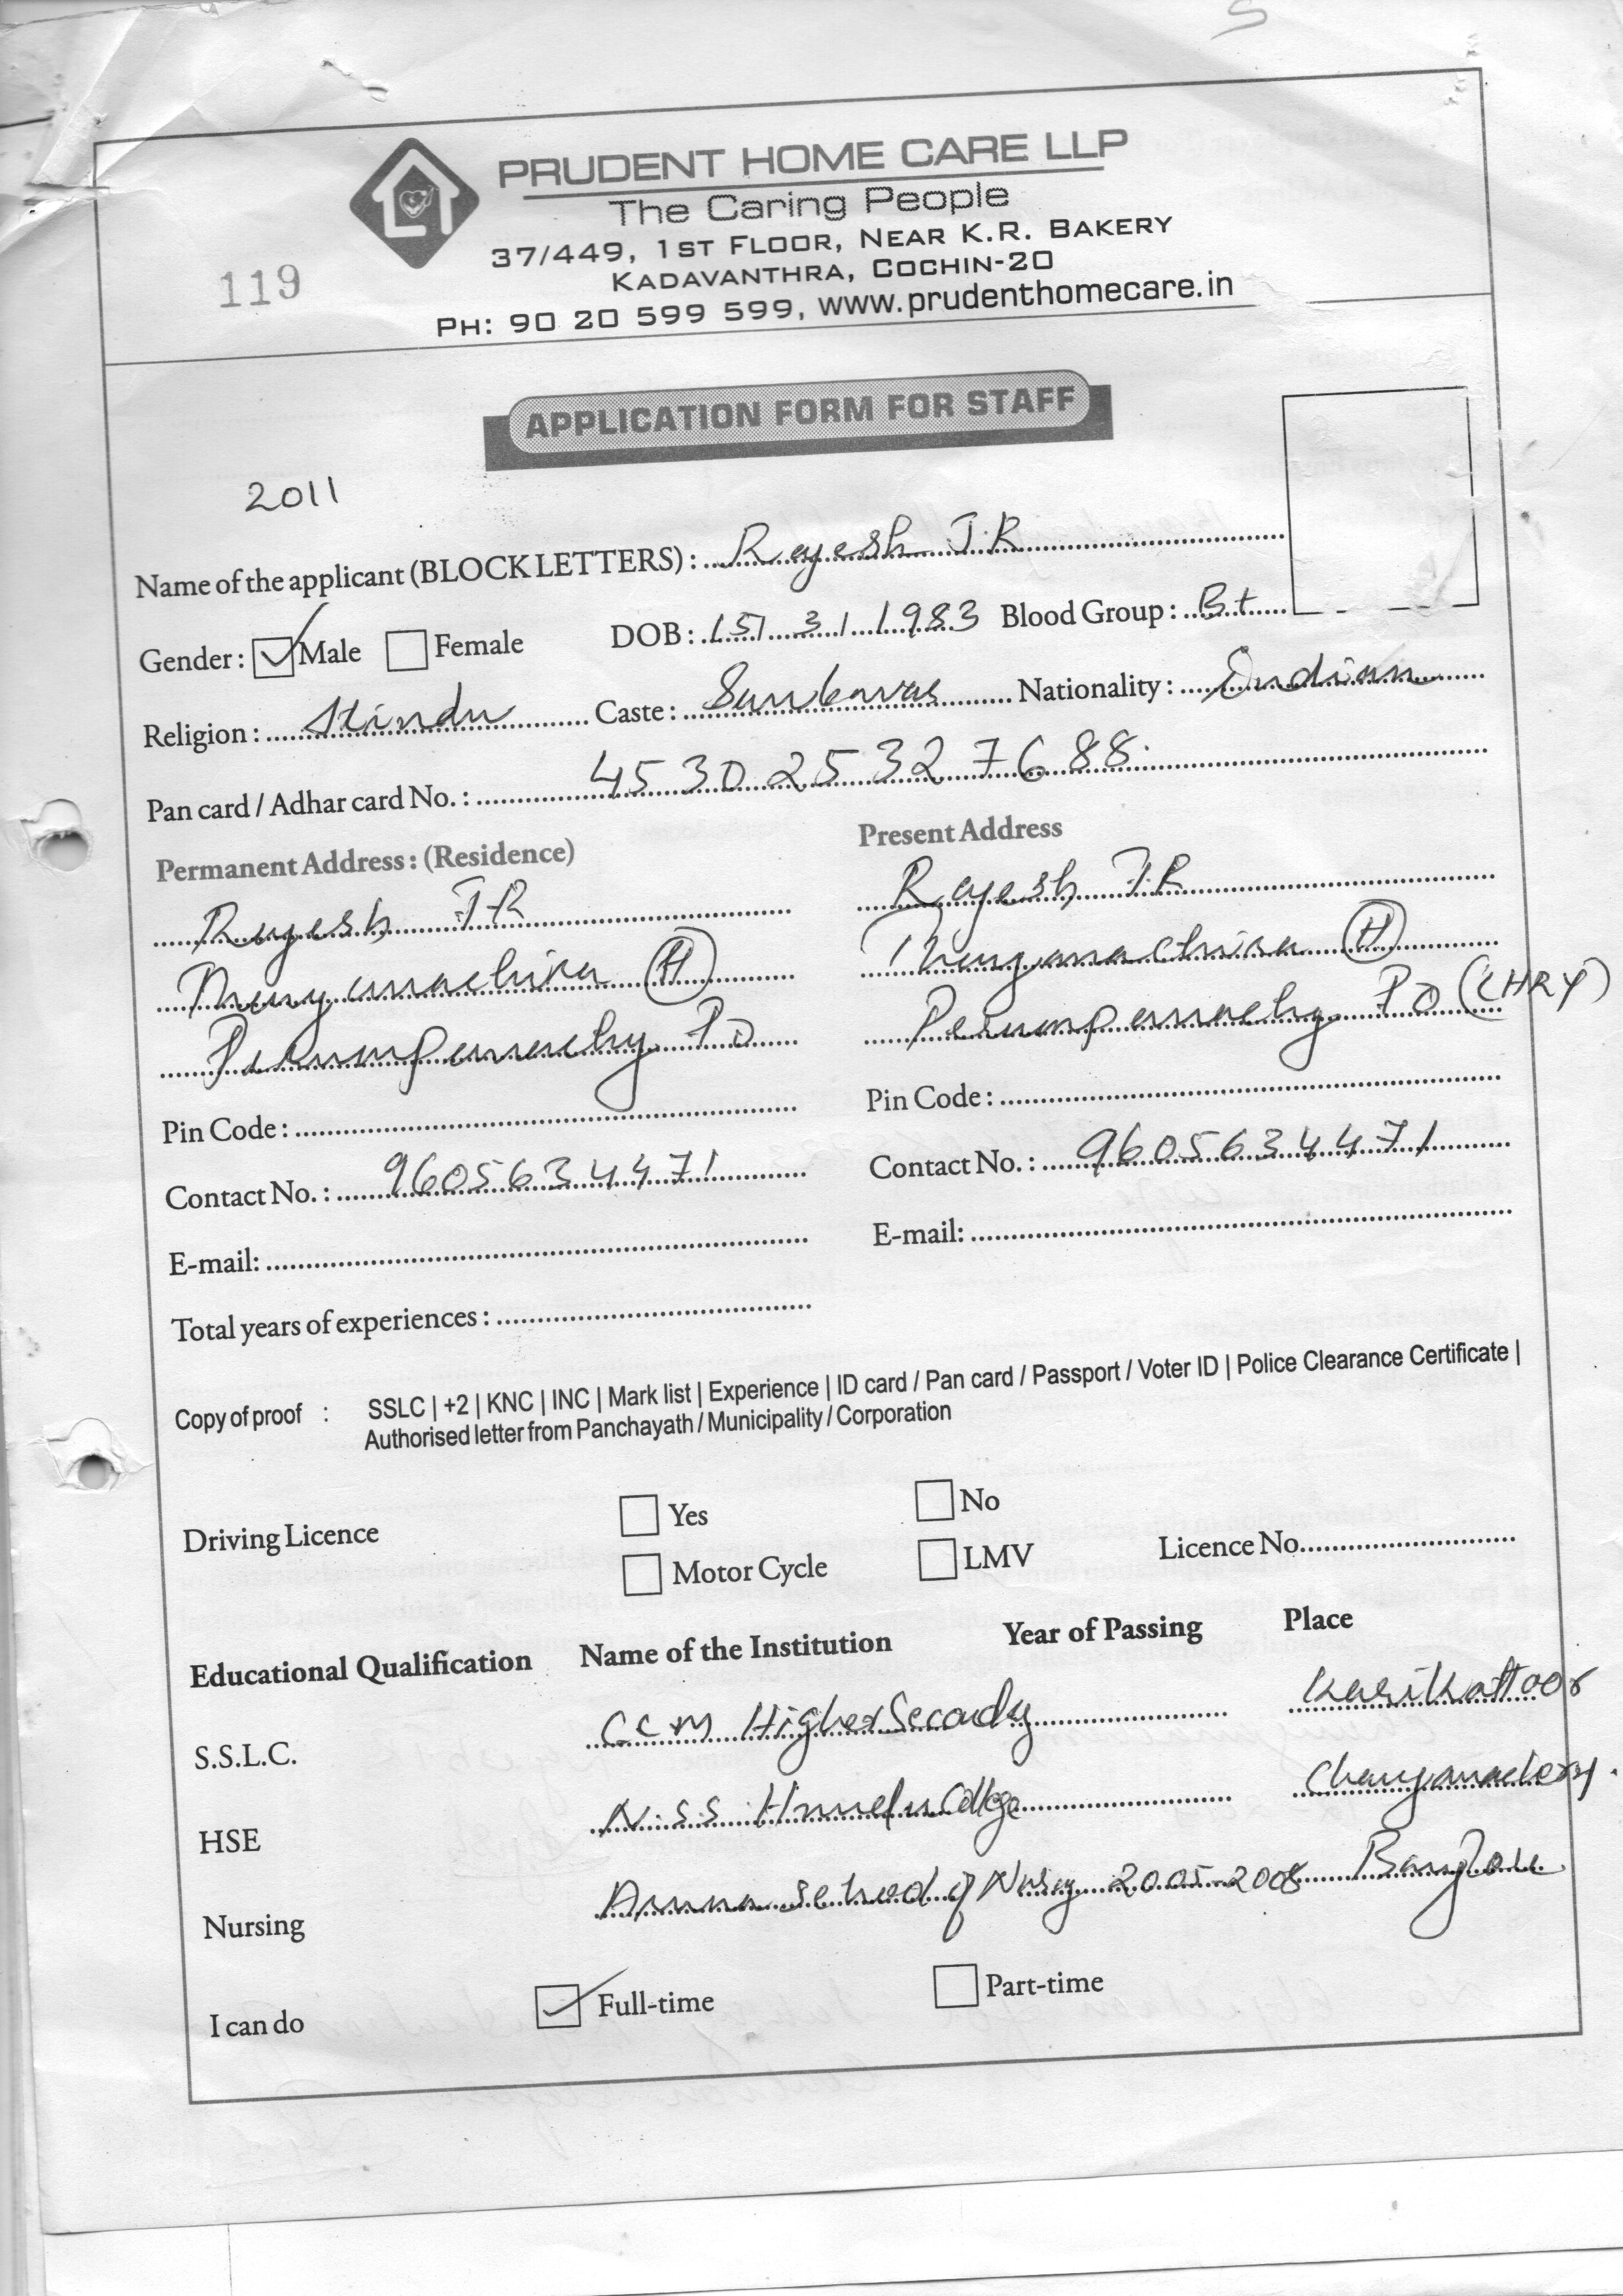 S
PRUDENT HOME CARE LLP
The Caring People
37/449, 1ST FLOOR, NEAR K.R. BAKERY
KADAVANTHRA, COCHIN-20
119
PH: 90 20 599 599, www.prudenthomecare.in
APPLICATION FORM FOR STAFF
2011
Name of the applicant (BLOCK LETTERS) : Rajesh T.R
Gender : Male Female DOB : 15/ 3/ 1983 Blood Group : B+
Religion : Hindu Caste : Nationality : Indian
Pan card / Adhar card No. : 4530 2532 7688
Permanent Address : (Residence) Present Address
Rajesh T-R Rajesh T.R
(H) (H)
Perumpanachy PO Perumpanachy PO (CHRY)
Pin Code : Pin Code :
Contact No. : 9605634471 Contact No. : 9605634471
E-mail: E-mail:
Total years of experiences :
Copy of proof : SSLC | +2 | KNC | INC | Mark list | Experience | ID card / Pan card / Passport / Voter ID | Police Clearance Certificate |
Authorised letter from Panchayath / Municipality / Corporation
Driving Licence Yes No
Motor Cycle LMV Licence No.
Educational Qualification Name of the Institution Year of Passing Place
S.S.L.C. CCM Higher Secondy Karikattoor
HSE N.S.S Hindu College
Nursing Anna School of 2005-2008
I can do Full-time Part-time